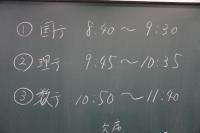 ① 国語 8:40 ～ 9:30
② 理科 9:45 ～ 10:35
③ 数学 10:50 ～ 11:40
欠席